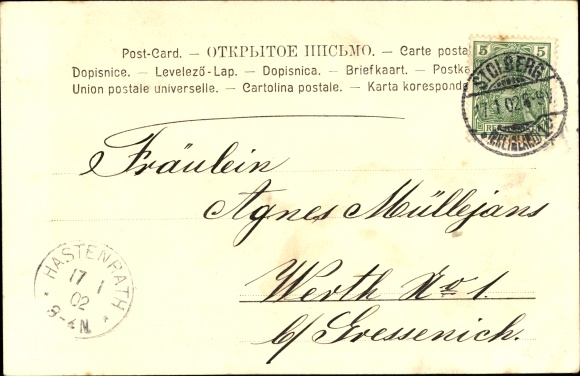 Post-Card. — ОТКРЫТОЕ ПИСЬМО. — Carte posta
Dopisnice. — Levelező-Lap. — Dopisnica. — Briefkaart. — Postka
Union postale universelle. — Cartolina postale. — Karta koresponde
5 5
STOLBERG
02
(RHEINLAND)
Fräulein
Agnes Müllejans
Werth No 1.
b/ Gressenich.
HASTENRATH
17 1
02
8-4N